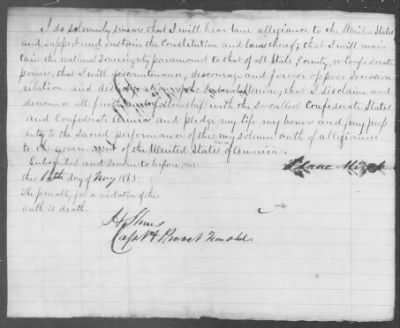 I do solemnly swear that I will bear true allegiance to the United States
and support and sustain the Constitution and laws thereof; that I will main
tain the national sovereignty paramount to that of all State, County, or Confederate
powers, that I will discountenance, discourage and forever oppose secession
rebellion and the that I disclaim and
denounce all faith fellowship with the so called Confederate States
and Confederate Armies and pledge my life my honor and my prop
erty to the sacred performance of this my solemn oath of allegiance
to the government of the United States of America.
Subscribed and sworn to before me Isaac
this 18th day of 1863
The penalty for a violation of this
oath is death.
Capt & Provost Marshal